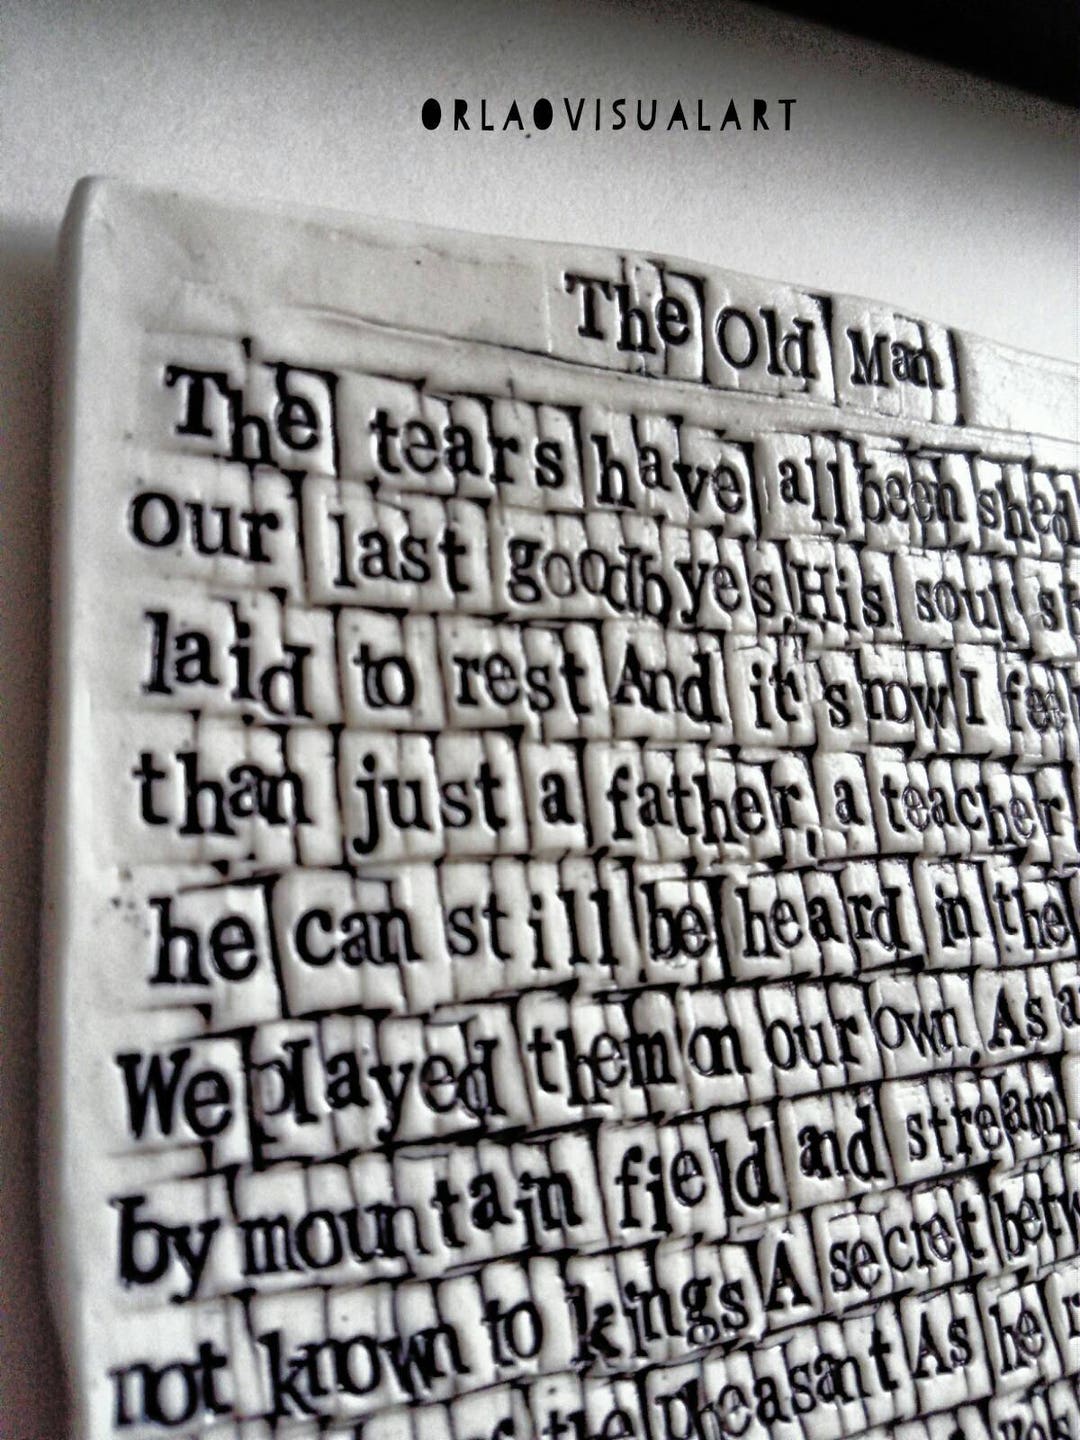 ORLAOVISUALART
The Old Man
The tears have all been shed
our last goodbyes His soul
laid to rest And it's now I
than just a father, a teacher
he can still be heard in the
We played them on our own, As a
by mountain field and stream,
not known to kings A secret
of the pheasant As he